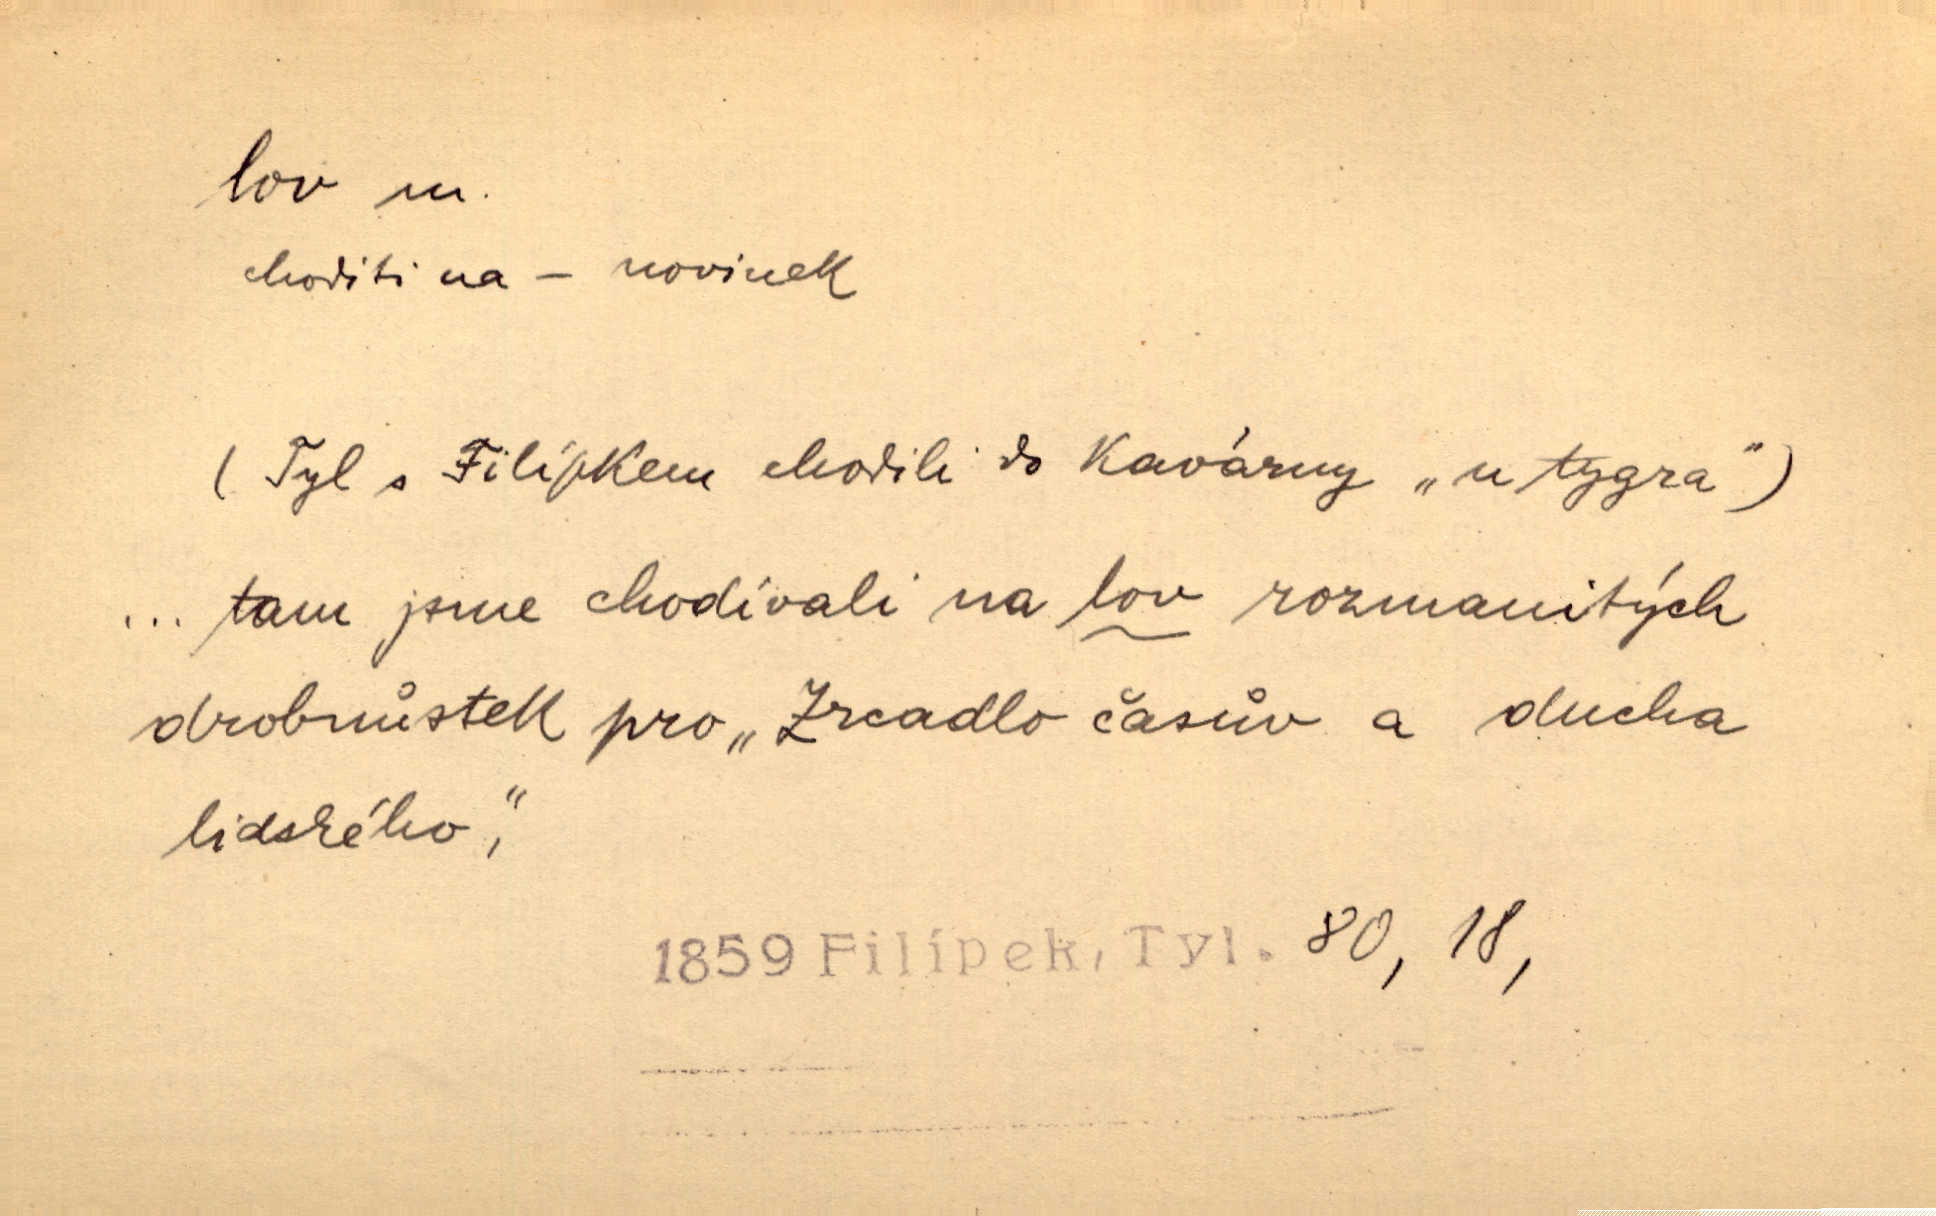 lov m.
choditi na – novinek
( Tyl s Filípkem chodili do kavárny „u tygra“)
... tam jsme chodívali na lov rozmanitých
drobnůstek pro „Zrcadlo časův a ducha
lidského“,
1859 Filípek, Tyl. 80, 18,